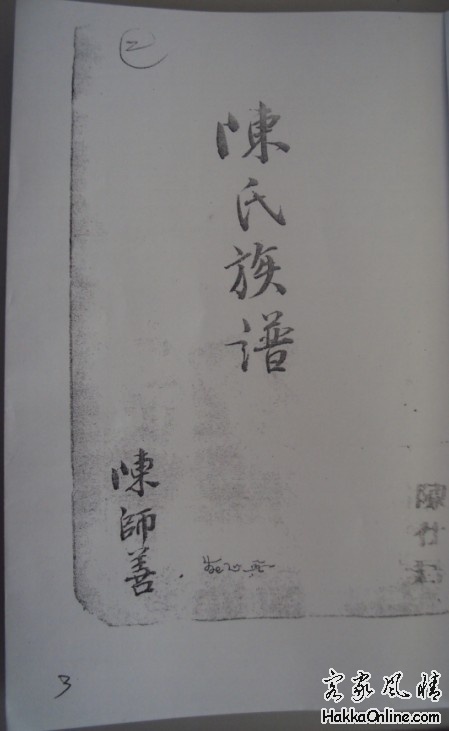 二
陳氏族譜
陳師善
3
客家风情
HakkaOnline.com